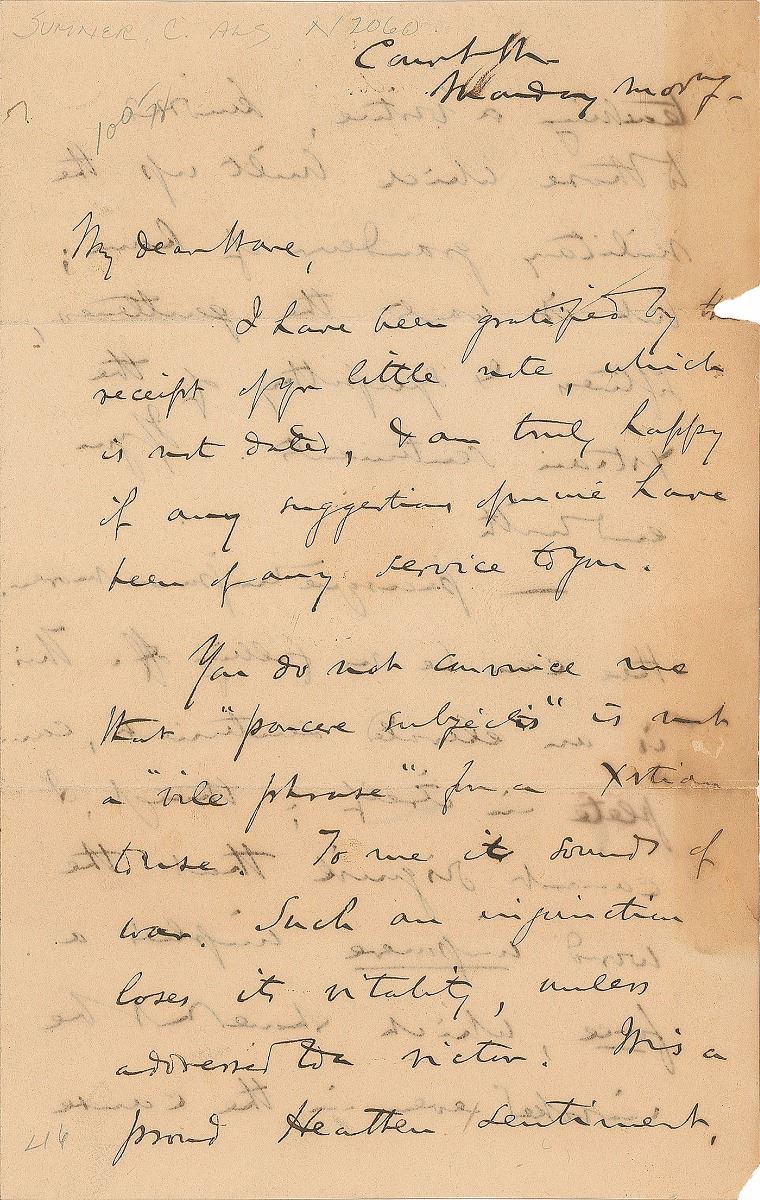 SUMNER, C. ALS N2060
Court St
Monday morng -
My dear Ware,
I have been gratified by the
receipt of yr little note, which
is not dated, & am truly happy
if any suggestions of mine have
been of any service to you.
You do not convince me
that "parcere subjectis" is not
a "vile phrase" for a Xstian
to use. To me it sounds of
war. Such an injunction
loses its vitality, unless
addressed to a victor. It is a
proud Heathen sentiment,